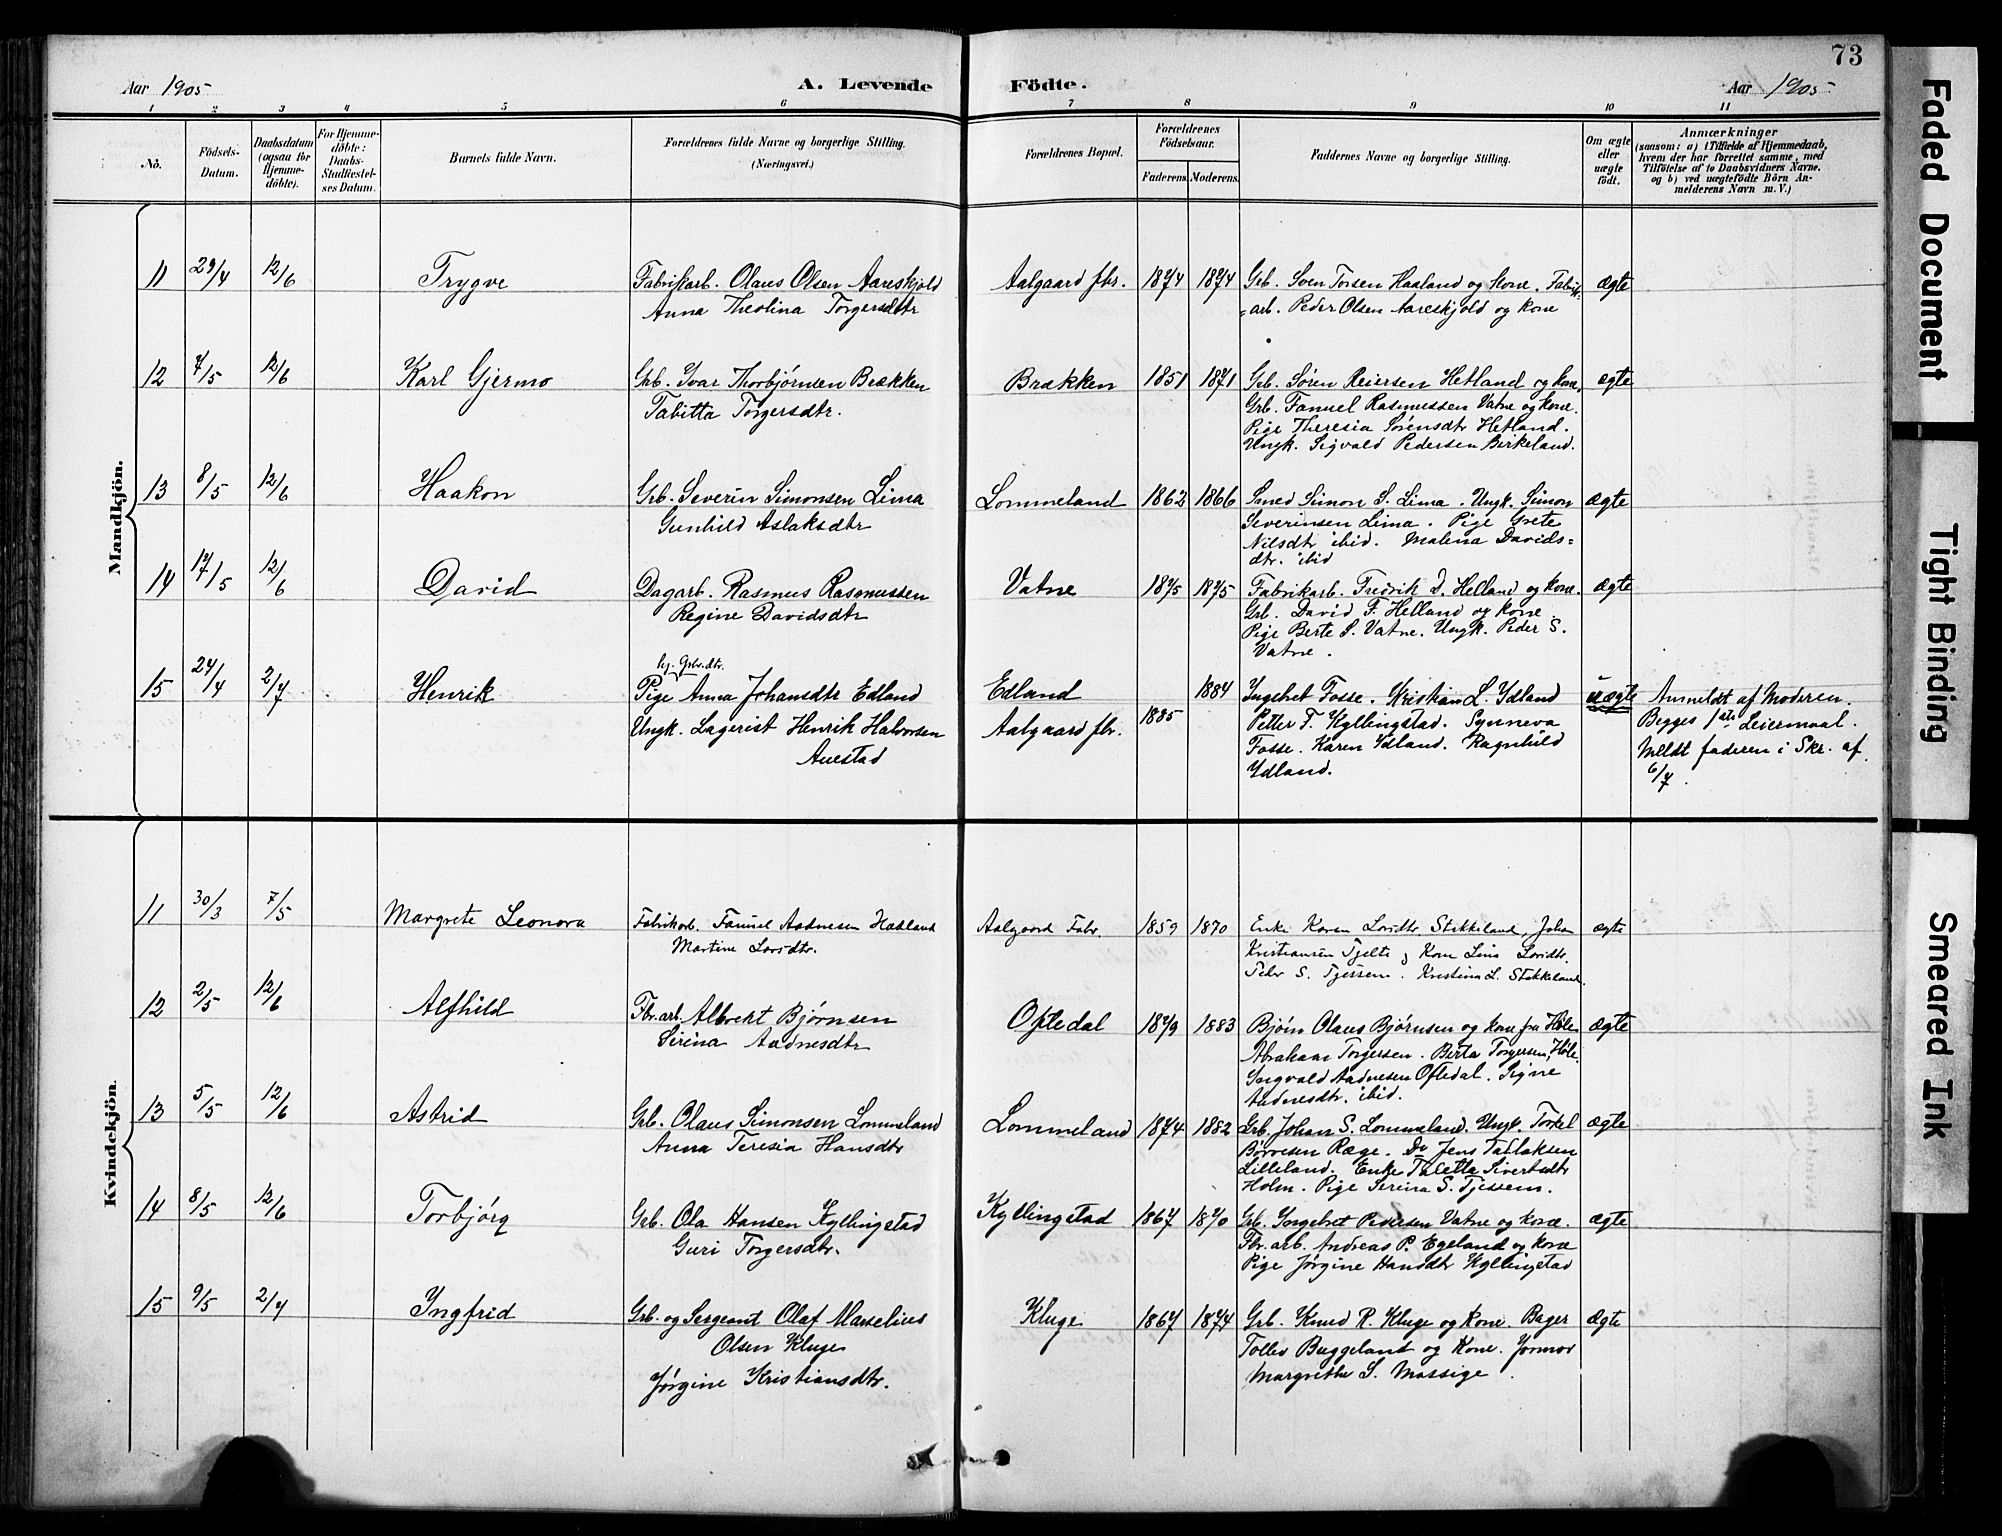 73
Aar 1905 A. Levende Födte. Aar 1905
1 2 3 4 5 6 7 8 9 10 11
No. Födsels-Datum. Daabsdatum (ogsaa for Hjemmedöbte). For Hjemmedöbte: Daabs-Stadfæstelses Datum. Barnets fulde Navn. Forældrenes fulde Navne og borgerlige Stilling. (Næringsvei.) Forældrenes Bopæl. Forældrenes Födselsaar. Faderens. Moderens. Faddernes Navne og borgerlige Stilling. Om ægte eller uægte födt. Anmærkninger
(saasom: a) i Tilfælde af Hjemmedaab,
hvem der har forrettet samme, med
Tilföielse af to Daabsvidners Navne.
og b) ved uægtefödte Börn An-
melderens Navn m. V.)
Mandkjön.
11 29/4 12/6 Trygve Fabrikarb. Olaus Olsen Aareskjold Aalgaard fbr. 1874 1874 Grb. Sven Torsen Haaland og kone. Fabrik- ægte
Anna Theolina Torgersdtr =arb. Peder Olsen Aareskjold og kone
12 7/5 12/6 Karl Gjermo Grb. Ivar Thorbjörnsen Brækken Brækken 1851 1871 Grb. Sören Reiersen Hetland og kone. ægte
Tabitta Torgersdtr. Grb. Fanuel Rasmussen Vatne og kone.
Pige Theresia Sörensdtr Hetland.
Ungk. Sigvald Pedersen Birkeland.
13 8/5 12/6 Haakon Grb. Severin Simonsen Lima Lommeland 1862 1866 Smed Simon S. Lima. Ungk. Simon ægte
Gunhild Aslaksdtr Severinsen Lima. Pige Grete
Nilsdtr ibid. Malena Davids=
dtr. ibid
14 17/5 12/6 David Dagarb. Rasmus Rasmussen Vatne 1875 1875 Fabrikarb. Fredrik D. Helland og kone. ægte
Regine Davidsdtr Grb. David F. Helland og kone.
Pige Berte S. Vatne. Ungk. Peder S.
Vatne.
15 24/4 2/7 Henrik Pige Anna Johansdtr Edland Edland 1884 Ingebret Fosse. Kristian L. Ydland uægte Anmeldt af Moderen.
Ungk. Lagerist Henrik Halvorsen Aalgaard fbr. 1885 Petter T. Kyllingstad. Synneva Begges 1ste Leiermaal.
Auestad Fosse. Karen Ydland. Ragnhild Meldt faderen i Skr. af
Ydland. 6/7.
Kvindekjön.
11 30/3 7/5 Margrete Leonora Fabrikarb. Fanuel Aadnesen Hadland Aalgaard Fabr. 1859 1870 Enke Karen Lardtr. Stokkeland, Johan ægte
Martine Larsdtr. Kristiansen Tjelte og Kone Lina
Peder S. Tjessem. Kristina L. Stokkeland.
12 2/5 12/6 Alfhild Fbr. arb. Albrekt Björnsen Oftedal 1879 1883 Björn Olaus Björnsen og kone fra Höle ægte
Serina Aadnesdtr Abraham Torgersen. Berta Torgersen, Höle.
Ingvald Aadnesen Oftedal. Signe
Aadnesdtr. ibid.
13 5/5 12/6 Astrid Grb. Olaus Simonsen Lommeland Lommeland 1874 1882 Grb. Johan S. Lommeland. Ungk. Torkel ægte
Anna Teresia Hansdtr Börresen Ræge. Do Jens Tallaksen
Lilleland. Enke Taletta Sivertsdtr
Holm. Pige Serina S. Tjessem.
14 8/5 12/6 Torbjörg Grb. Ola Hansen Kyllingstad Kyllingstad 1867 1870 Grb. Ingebret Pedersen Vatne og kone. ægte
Guri Torgersdtr. Fbr. arb. Andreas P. Egeland og kone
Pige Jörgine Hansdtr Kyllingstad
15 9/5 2/7 Ingfrid Grb. og Sergeant Olaf Marselius Kluge 1867 1874 Grb. Knud R. Kluge og kone. Bager ægte
Olsen Kluge Tollev Buggeland og Kone. Jormor
Jörgine Kristiansdtr. Margrethe S. Massige.
Faded Document
Tight Binding
Smeared Ink